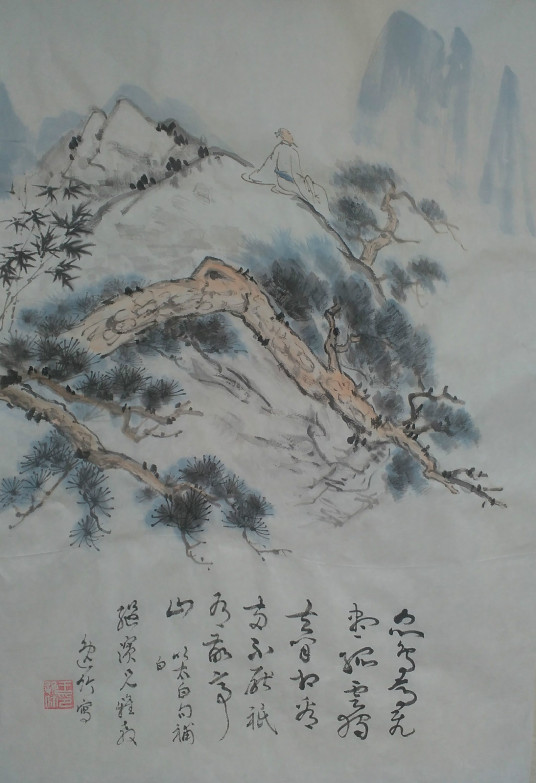 众鳥高飛
盡孤雲獨
去閒相看
两不厭祇
有敬亭
山
以太白句補
白
兄雅教
逸竹寫